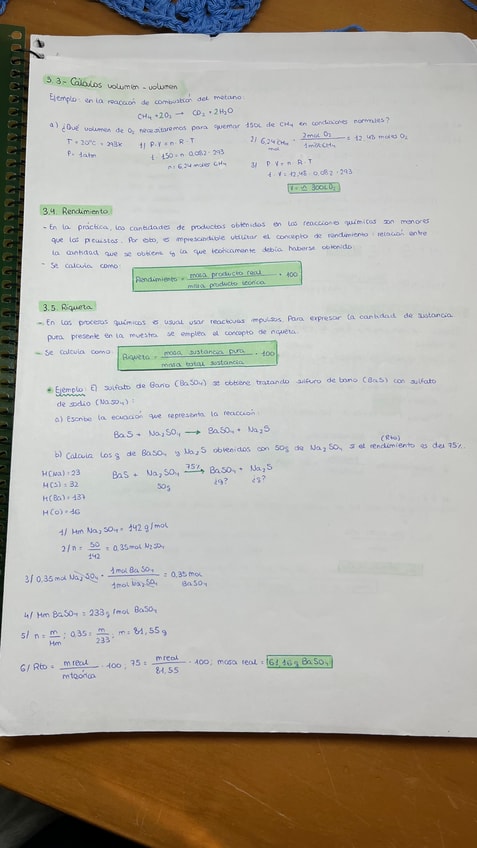 3.3.- Cálculos volumen - volumen
Ejemplo: en la reacción de combustión del metano:
CH₄ + 2O₂ → CO₂ + 2H₂O
a) ¿Qué volumen de O₂ necesitaremos para quemar 150L de CH₄ en condiciones normales?
T = 20ºC = 293K 1) P·V = n·R·T 2) 6,24 CH₄ · 2mol O₂ / 1mol CH₄ = 12,48 moles O₂
P = 1atm 1·150 = n·0,082·293 3) P·V = n·R·T
n = 6,24 moles CH₄ 1·V = 12,48·0,082·293
300L O₂
3.4. Rendimiento
- En la práctica, las cantidades de productos obtenidos en las reacciones químicas son menores
que las previstas. Por esto, es imprescindible utilizar el concepto de rendimiento: relación entre
la cantidad que se obtiene y la que teóricamente debía haberse obtenido.
- Se calcula como:
Rendimiento = masa producto real / masa producto teórica · 100
3.5. Riqueza
- En los procesos químicos es usual usar reactivos impuros. Para expresar la cantidad de sustancia
pura presente en la muestra se emplea el concepto de riqueza.
- Se calcula como: Riqueza = masa sustancia pura / masa total sustancia · 100
Ejemplo: El sulfato de Bario (BaSO₄) se obtiene tratando sulfuro de bario (BaS) con sulfato
de sodio (Na₂SO₄):
a) Escribe la ecuación que representa la reacción:
BaS + Na₂SO₄ → BaSO₄ + Na₂S
(Rto)
b) Calcula los g de BaSO₄ y Na₂S obtenidos con 50g de Na₂SO₄ si el rendimiento es del 75%.
M(Na) = 23 BaS + Na₂SO₄ 75% → BaSO₄ + Na₂S
M(S) = 32 50g ¿g? ¿g?
M(Ba) = 137
M(O) = 16
1/ Mm Na₂SO₄ = 142 g/mol
2/ n = 50/142 = 0,35 mol N₂SO₄
3/ 0,35 mol Na₂SO₄ · 1mol BaSO₄ / 1mol Na₂SO₄ = 0,35 mol BaSO₄
4/ Mm BaSO₄ = 233 g/mol BaSO₄
5/ n = m/Mm ; 0,35 = m/233 ; m = 81,55 g
6/ Rto = m real / m teórica · 100 ; 75 = m real / 81,55 · 100 ; masa real = 61,16 g BaSO₄